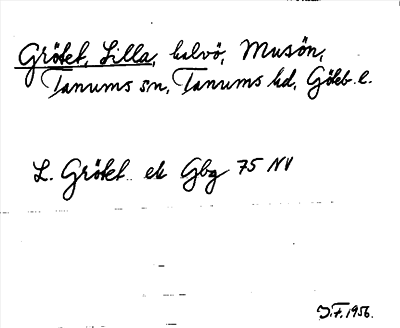 Grötet, Lilla, halvö, Musön,
Tanums sn, Tanums hd, Göteb. l.
L. Grötet ek Gbg 75 NV
J.F. 1956.